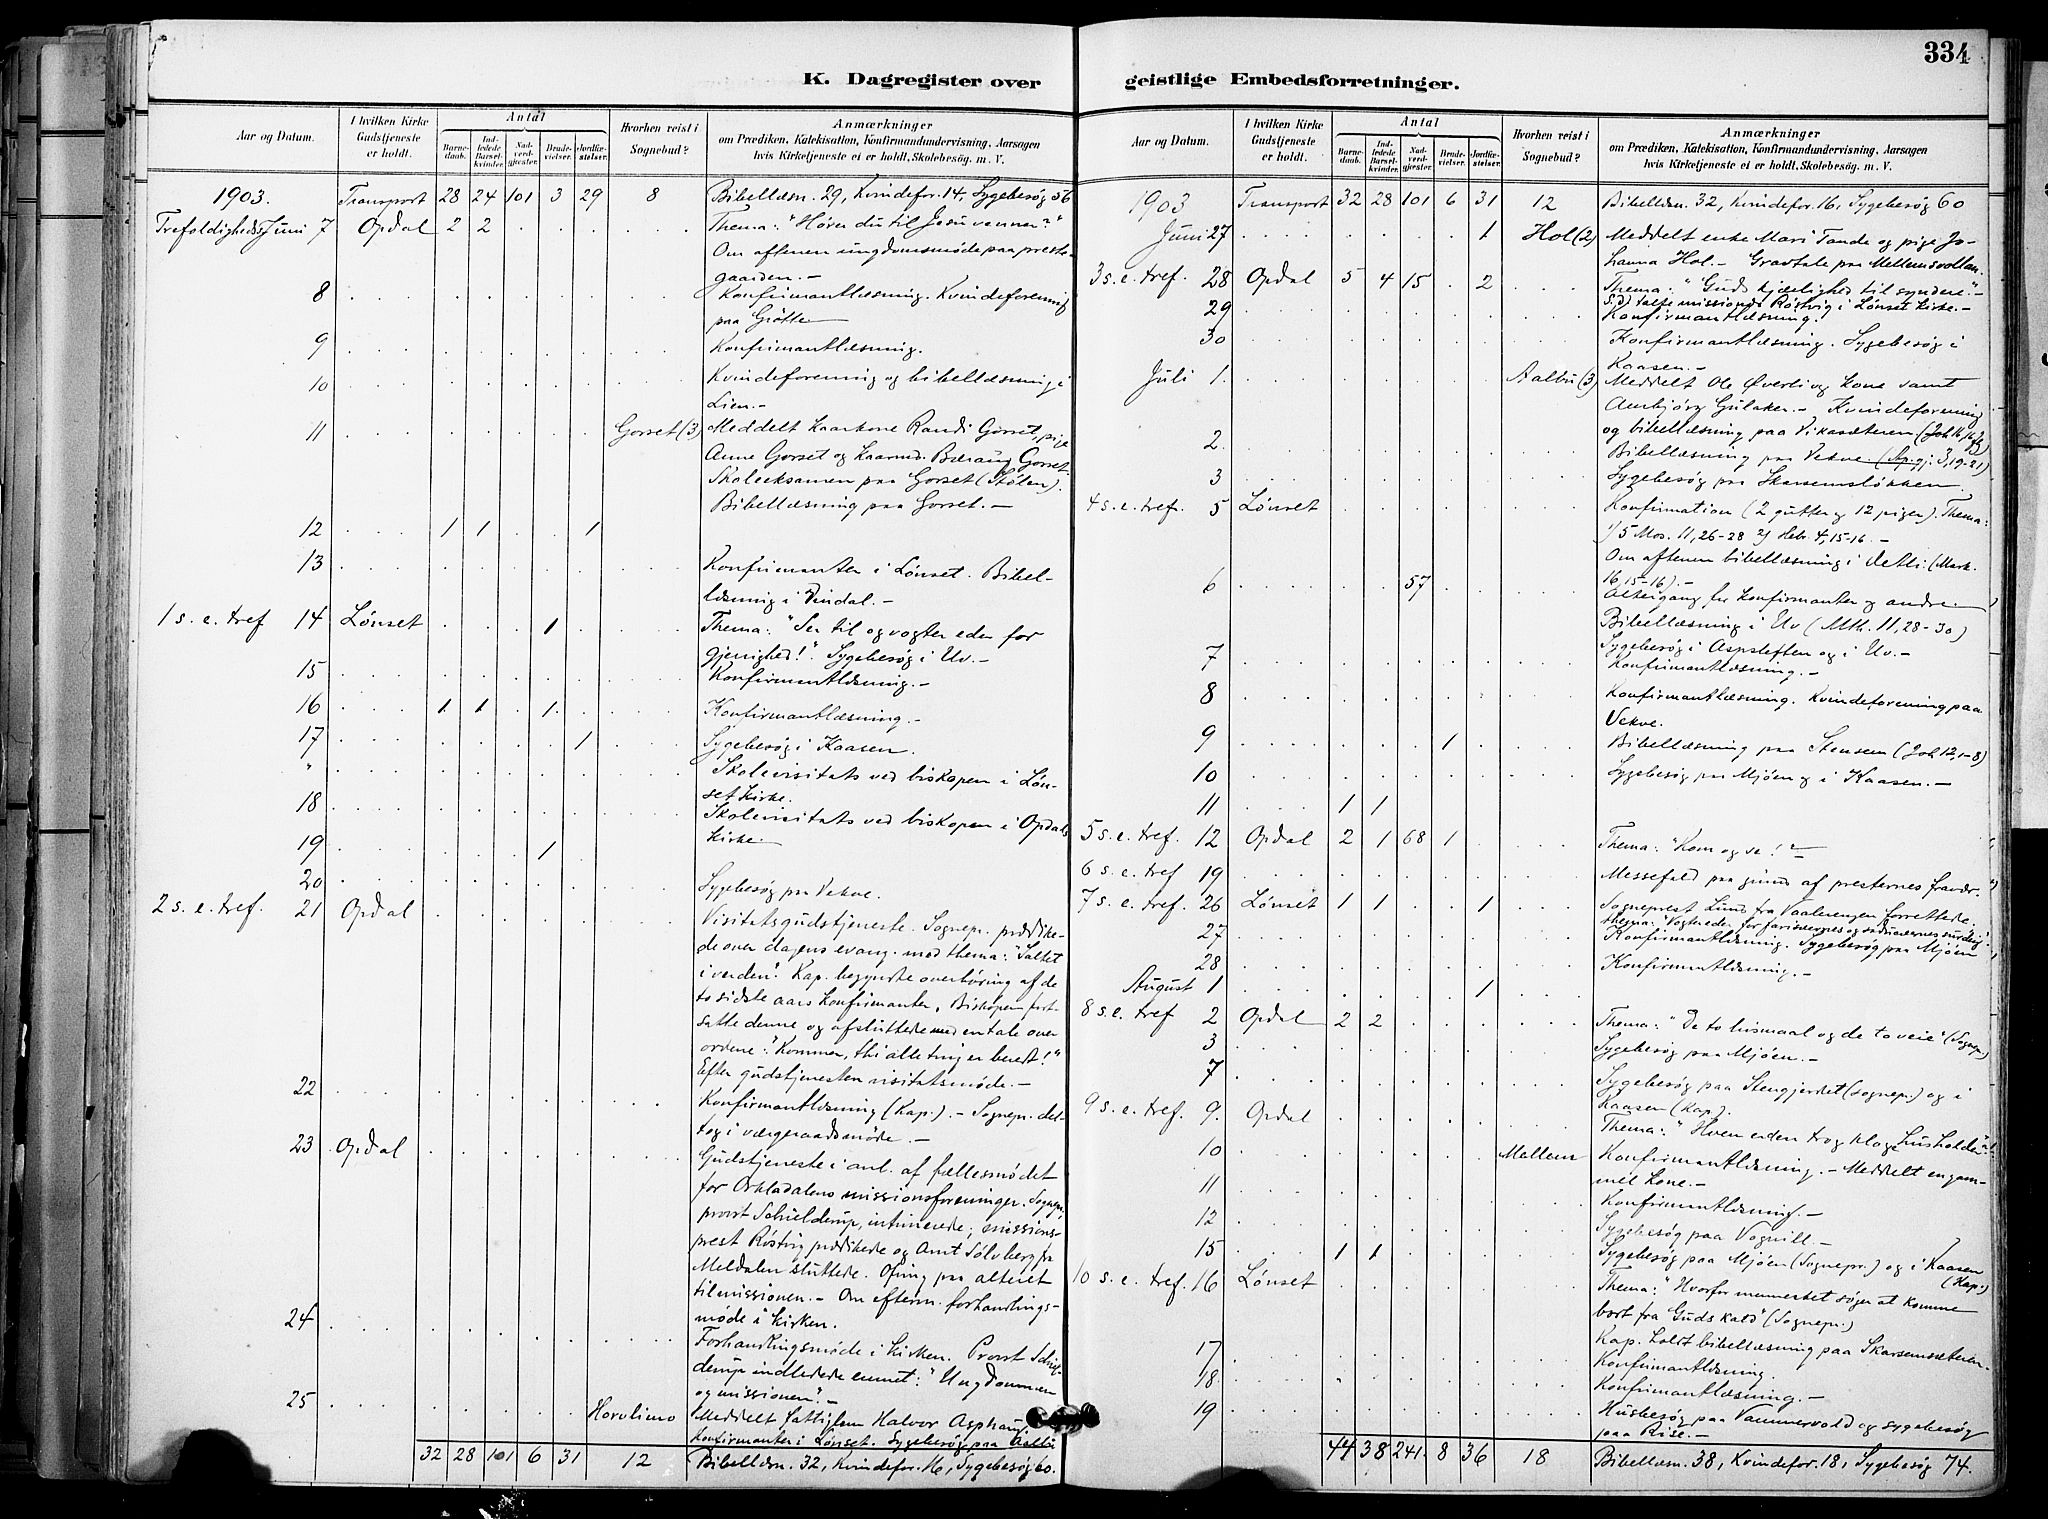 334
K. Dagregister over
Aar og Datum.
I hvilken Kirke Gudstjeneste er holdt.
Antal
Barnedaab.
Indledede Barselkvinder.
Nadverdgjester.
Brudevielser.
Jordfæstelser.
Hvorhen reist i Sognebud?
Anmærkninger
om Prædiken, Katekisation, Konfirmandundervisning, Aarsagen
hvis Kirketjeneste ei er holdt, Skolebesøg. m. V.
1903. Transport 28 24 101 3 29 8 Bibellæsn. 29, Kvindefor. 14, Sygebesøg 56
Trefoldigheds Juni 7 Opdal 2 2 Thema: "Hører du til Jesu venner?"
Om aftenen ungdomsmøde paa preste-
gaarden.-
8 Konfirmantlæsning. Kvindeforening
paa Grøtte
9 Konfirmantlæsning.
10 Kvindeforening og bibellæsning i
Lien.-
11 Gorset (3) Meddelt kaarkone Randi Gorset, pige
Anne Gorset og kaarmd. Gorset.
Skoleeksamen paa Gorset (Stølen).
Bibellæsning paa Gorset.-
12 1 1 1
13 Konfirmanter i Lønset. Bibel-
læsning i Vindal.-
1 s. e. tref 14 Lønset 1 Thema: "Ser til og vogter eder for
gjerrighed!". Sygebesøg i Uv.-
15 Konfirmantlæsning.-
16 1 1 1 Konfirmantlæsning.-
17 1 Sygebesøg i Kaasen.
" Skolevisitats ved biskopen i Løn-
set kirke.
18 Skolevisitats ved biskopen i Opdals
kirke.
19 1
20 Sygebesøg paa Vekve.
2 s. e. tref. 21 Opdal Visitatsgudstjeneste. Sognepr. prædike-
de over dagens evang. med thema: "Saltet
i verden". Kap. begyndte overhøring af de
to sidste aars konfirmanter, Biskopen fort-
satte denne og afsluttede med en tale over
ordene: "Kommer, thi alle ting er beredt!"
Efter gudstjenesten visitatsmøde.-
22 Konfirmantlæsning (Kap.).- Sognepr. del-
tog i værgeraadsmøde.-
23 Opdal Gudstjeneste i anl. af fællesmødet
for Orkladalens missionsforeninger. Sognepr.
provst Schielderup, intimerede; missions-
prest Røstvig prædikede og Amt Sølvberg fra
Meldalen sluttede. Ofring paa alteret
til missionen.- Om efterm. forhandlings-
møde i kirken.
24 Forhandlingsmøde i kirken. Provst Schiel-
derup indledede emnet: "Ungdommen
og missionen".-
25 Horvlimo Meddelt fattiglem Halvor Asphaug
Konfirmanter i Lønset. Sygebesøg paa Aalbu
32 28 101 6 31 12 Bibellæsn. 32, Kvindefor. 16, Sygebesøg 60.
geistlige Embedsforretninger.
Aar og Datum.
I hvilken Kirke Gudstjeneste er holdt.
Antal
Barnedaab.
Indledede Barselkvinder.
Nadverdgjester.
Brudevielser.
Jordfæstelser.
Hvorhen reist i Sognebud?
Anmærkninger
om Prædiken, Katekisation, Konfirmandundervisning, Aarsagen
hvis Kirketjeneste ei er holdt, Skolebesøg. m. V.
1903 Transport 32 28 101 6 31 12 Bibellæsn. 32, Kvindefor. 16, Sygebesøg 60
Juni 27 1 Hol (2) Meddelt enke Mari Tande og pige Jo-
hanna Hol.- Gravtale paa Mellemsvollan.
3 s. e. tref. 28 Opdal 5 4 15 2 Thema: "Guds kjærlighed til syndere".-
S.D. talte missionær Røstvig i Lønset kirke.-
29 Konfirmantlæsning.
30 Konfirmantlæsning. Sygebesøg i
Kaasen.-
Juli 1. Aalbu (3) Meddelt Ole Øverli og kone samt
Gulaker.- Kvindeforening
og bibellæsning paa Vikasæteren (Joh.
2. Bibellæsning paa Vekve. (Ap.gj. 3, 19-21)
3 Sygebesøg paa Skarsemsløkken.
4 s. e. tref. 5 Lønset Konfirmation (2 gutter og 12 piger). Thema:
1) 5 Mos. 11, 26-28 2) Hebr. 4, 15-16.-
Om aftenen bibellæsning i Detli. (Mark.
16, 15-16).-
6 57 Altergang for konfirmanter og andre.
Bibellæsning i Uv (Mth. 11, 28-30)
Sygebesøg i Aspsleften og i Uv.-
7 Konfirmantlæsning.-
8 Konfirmantlæsning. Kvindeforening paa
Vekve.
9 1 Bibellæsning paa Stensem (Joh 12, 1-8)
10 Sygebesøg paa Mjøen og i Kaasen.-
11 1 1
5 s. e. tref. 12 Opdal 2 1 68 1 Thema: "Kom og se!"
6 s. e. tref 19 Messefald paa grund af presternes fravær.
7 s. e. tref. 26 Lønset 1 1 1 Sogneprest Lund fra Vaalerengen forrettede.
thema: "Vogt eder for farisæernes og saducæernes surdeig".
27 Konfirmantlæsning. Sygebesøg paa Mjøen
28 Konfirmantlæsning.-
August 1 1
8 s. e. tref 2 Opdal 2 2 Thema: "De to livsmaal og de to veie" (Sognepr.)
3 Sygebesøg paa Mjøen.-
7 Sygebesøg paa Stengjerdet (sognepr.) og i
Kaasen (Kap.).
9 s. e. tref. 9. Opdal Thema: "Hven er den tro og kloge husholder".
10 Mellem Konfirmantlæsning.- Meddelt en gam-
mel kone.-
11 Konfirmantlæsning.-
12 Sygebesøg paa Vognill.-
15 1 1 Sygebesøg paa Mjøen (Sognepr.) og i Kaasen
(Kap.)
10 s. e. tref. 16 Lønset Thema: "Hvorfor mennesket søger at komme
bort fra Guds kald" (Sognepr.)
Kap. holdt bibellæsning paa Skarsemsæteren.
17 Konfirmantlæsning.
18 Konfirmantlæsning.-
19 Husbesøg paa Vammervold og sygebesøg
paa Rise.-
44 38 241 8 36 18 Bibellæsn. 38, Kvindefor. 18, Sygebesøg 74.